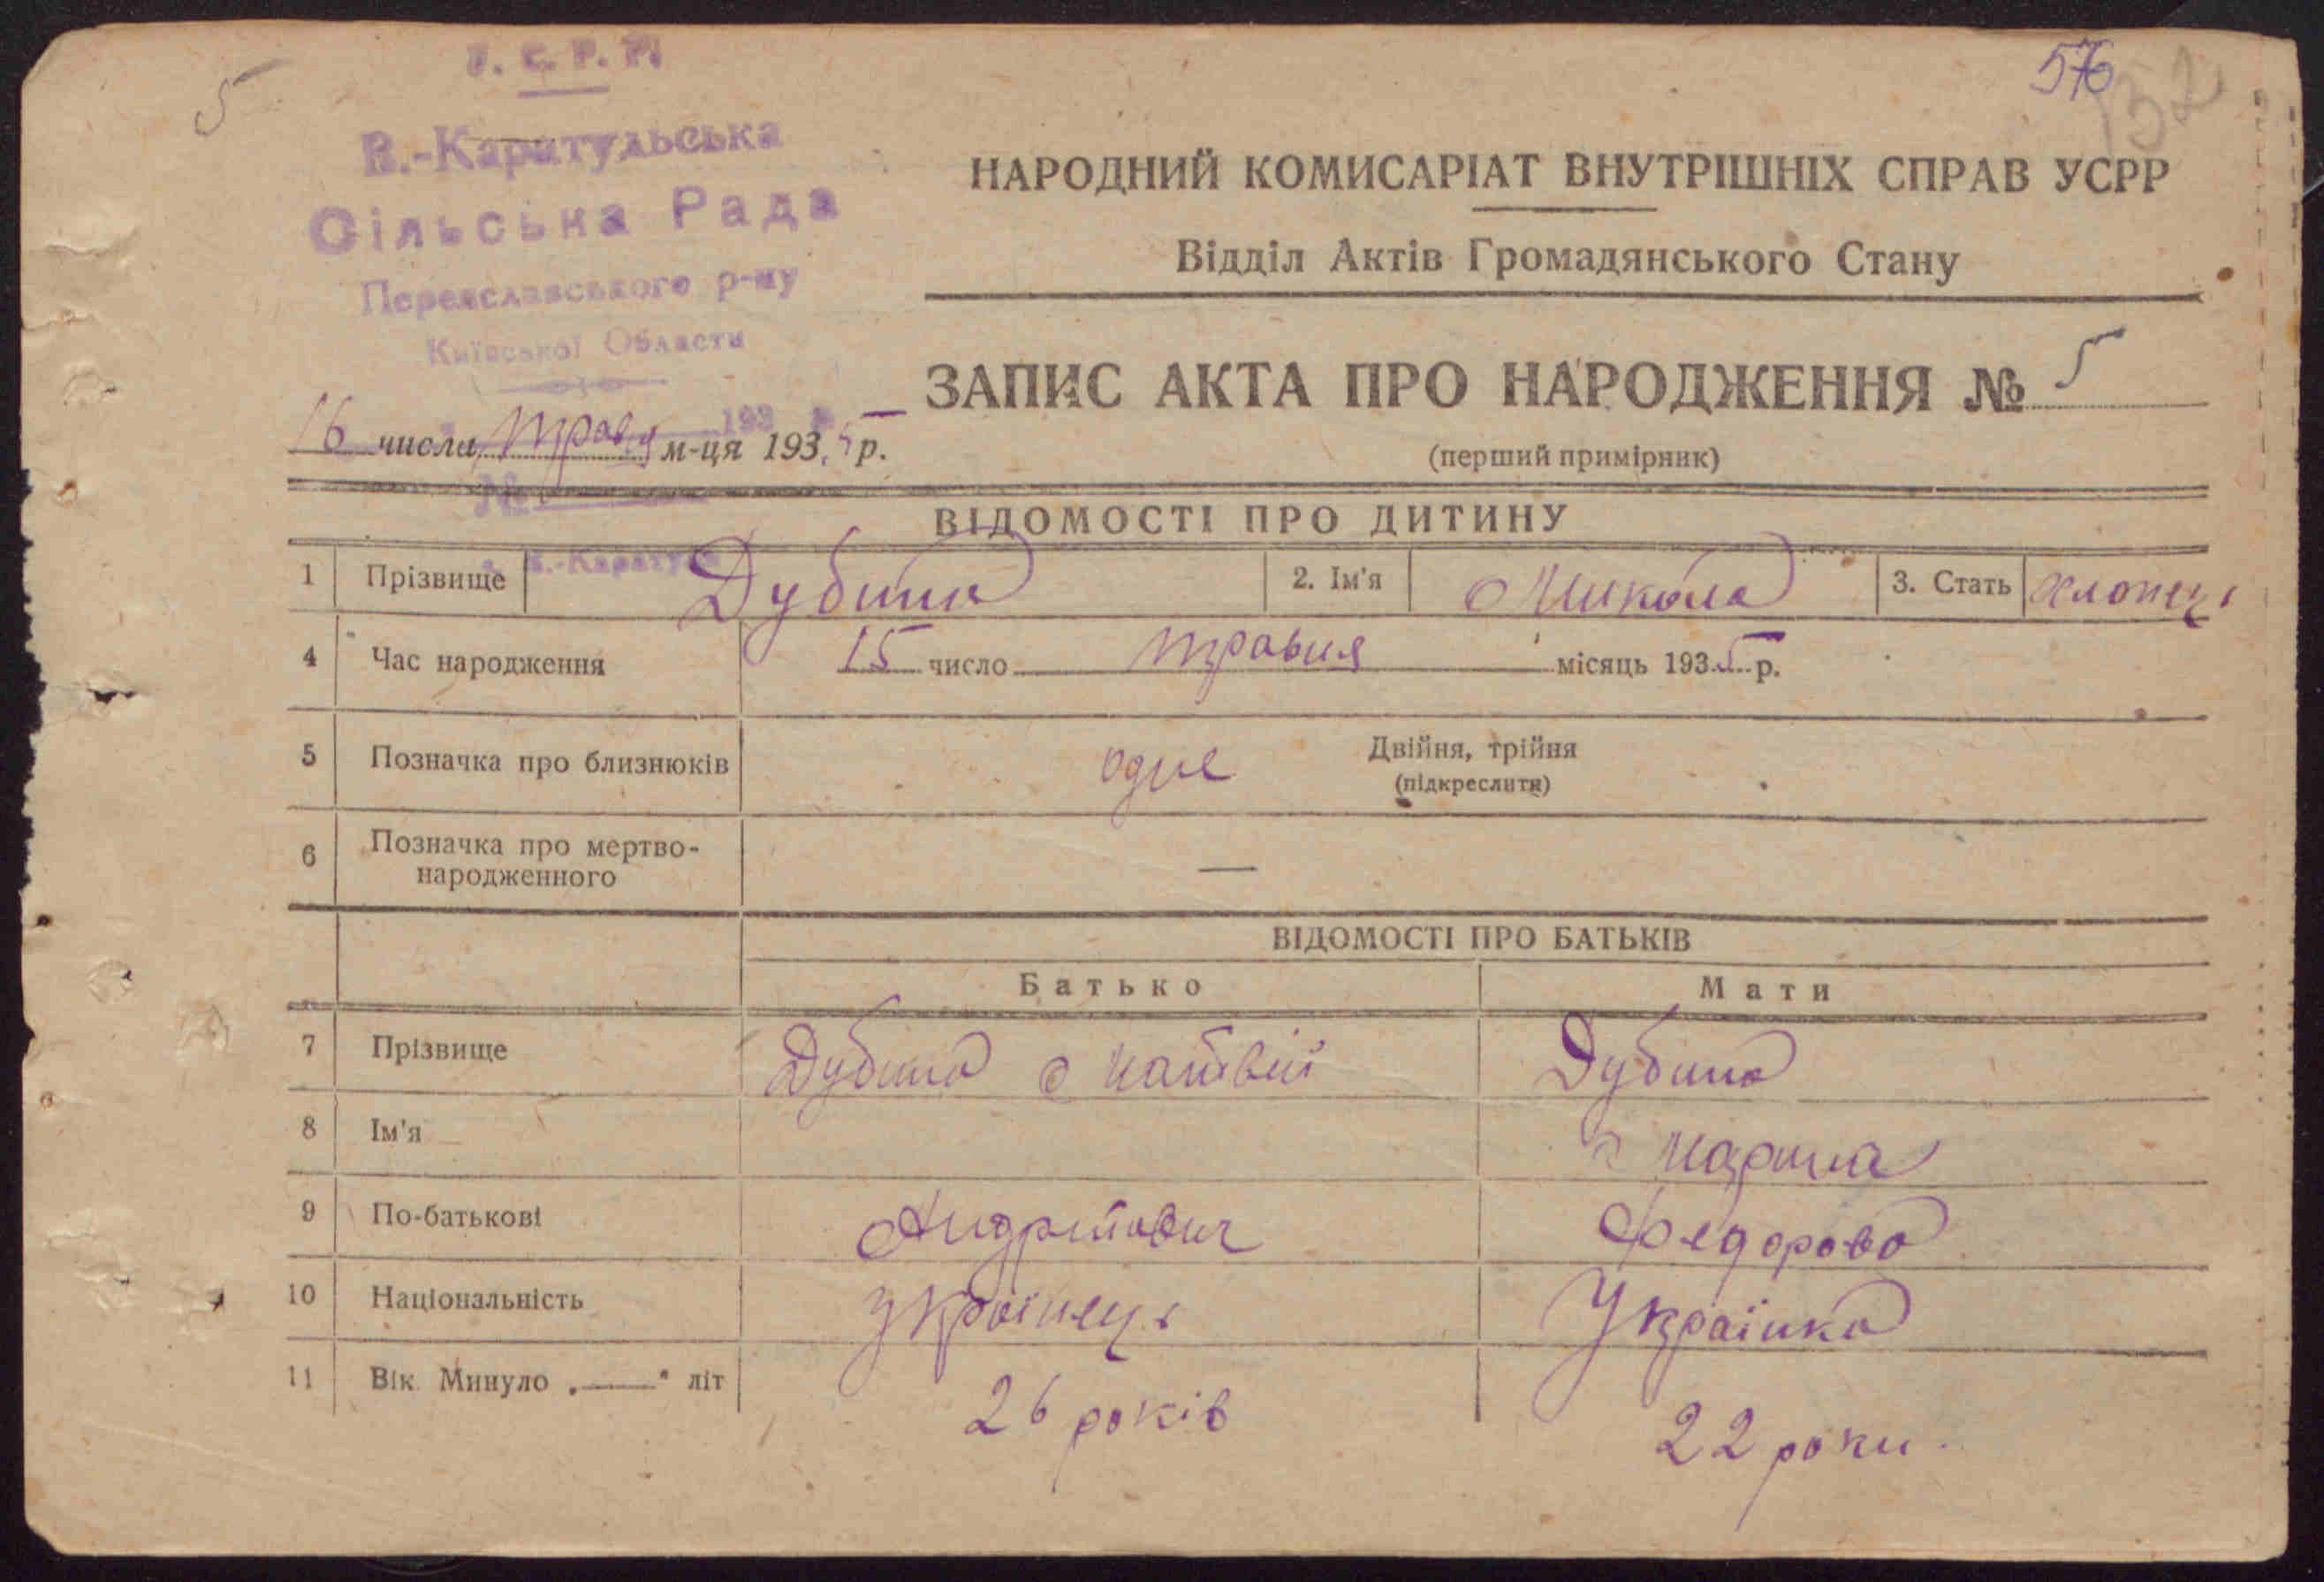 У. С. Р. Р.
5
576
132
В.-Каратульська
Сільська Рада
Переяславського р-ну
Київської Области
НАРОДНИЙ КОМИСАРІАТ ВНУТРІШНІХ СПРАВ УСРР
Відділ Актів Громадянського Стану
ЗАПИС АКТА ПРО НАРОДЖЕННЯ № 5
(перший примірник)
193 р.
16 числа травня м-ця 1935 р.
№
ВІДОМОСТІ ПРО ДИТИНУ
с. В.-Каратуль
1 Прізвище Дубина 2. Ім'я Микола 3. Стать хлопець
4 Час народження 15 число травня місяць 1935 р.
5 Позначка про близнюків одне Двійня, трійня
(підкреслити)
6 Позначка про мертво-
народженного —
ВІДОМОСТІ ПРО БАТЬКІВ
Батько Мати
7 Прізвище Дубина Матвій Дубина
8 Ім'я Марина
9 По-батькові Андрійович Федоров
10 Національність Українець Українка
11 Вік Минуло „——" літ 26 років 22 роки